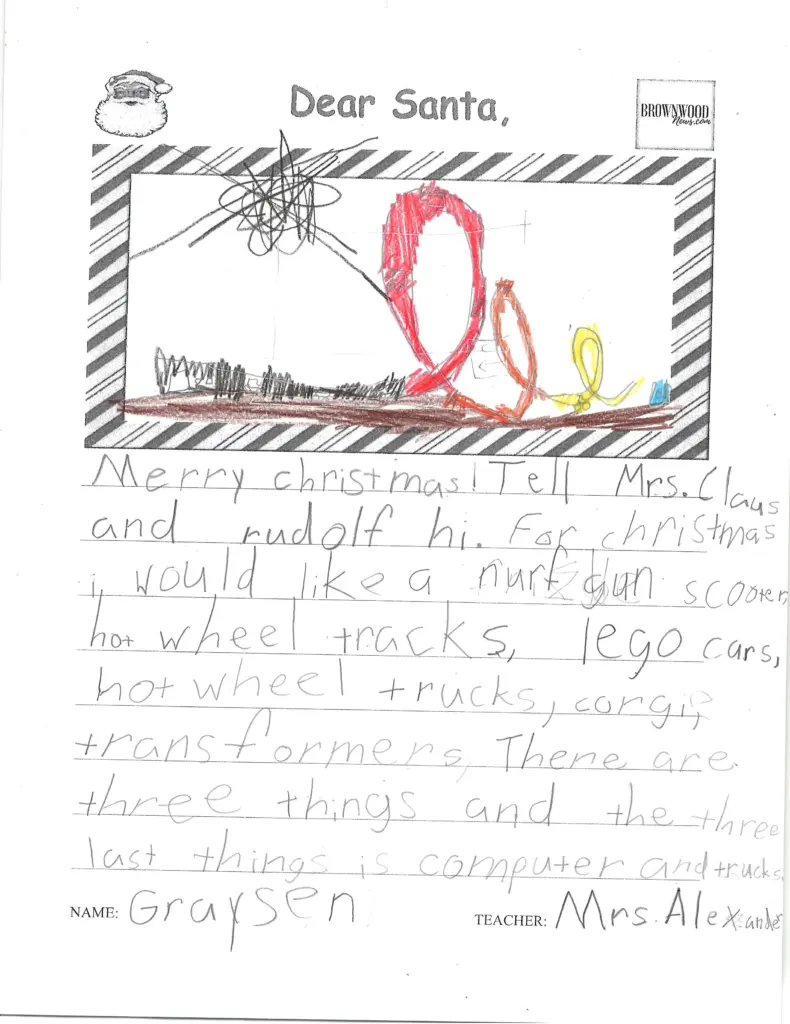 Dear Santa,
BROWNWOOD
News.com
Merry christmas! Tell Mrs. Claus
and rudolf hi. For christmas
i would like a nurf gun scooter
hot wheel tracks, lego cars,
hot wheel trucks, corgi,
transformers, There are
three things and the three
last things is computer and trucks.
NAME: Graysen
TEACHER: Mrs. Alexander